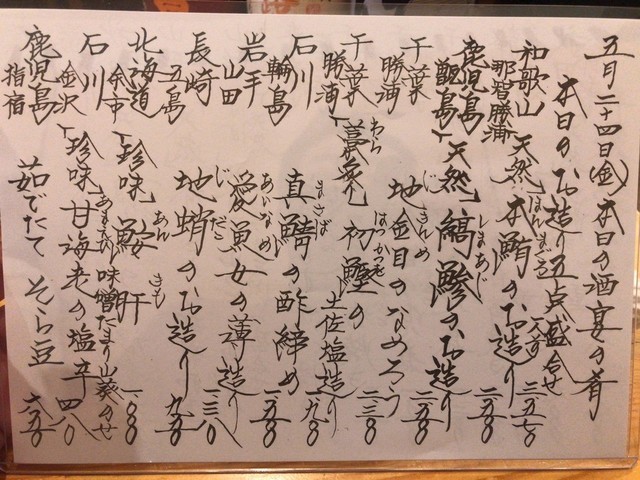 五月二十四日(金)本日の酒宴の肴
本日のお造り五点盛合せ 三五七〇
和歌山 那智勝浦 「天然」本鮪のお造り 二五〇〇
鹿児島 甑島 「天然」縞鯵のお造り 二五〇〇
千葉 勝浦 地金目のなめろう 一二三〇
千葉 勝浦 「藁炙」初鰹の土佐塩造り 一九八〇
石川 輪島 真鯖の酢締め 一五〇〇
岩手 山田 愛魚女の薄造り 一三八〇
長崎 五島 地蛸のお造り 九五〇
北海道 余市 「珍味」鮟肝味噌たまり山葵のせ 一一〇〇
石川 金沢 「珍味」甘海老の塩辛 四八〇
鹿児島 指宿 茹でたて そら豆 六五〇